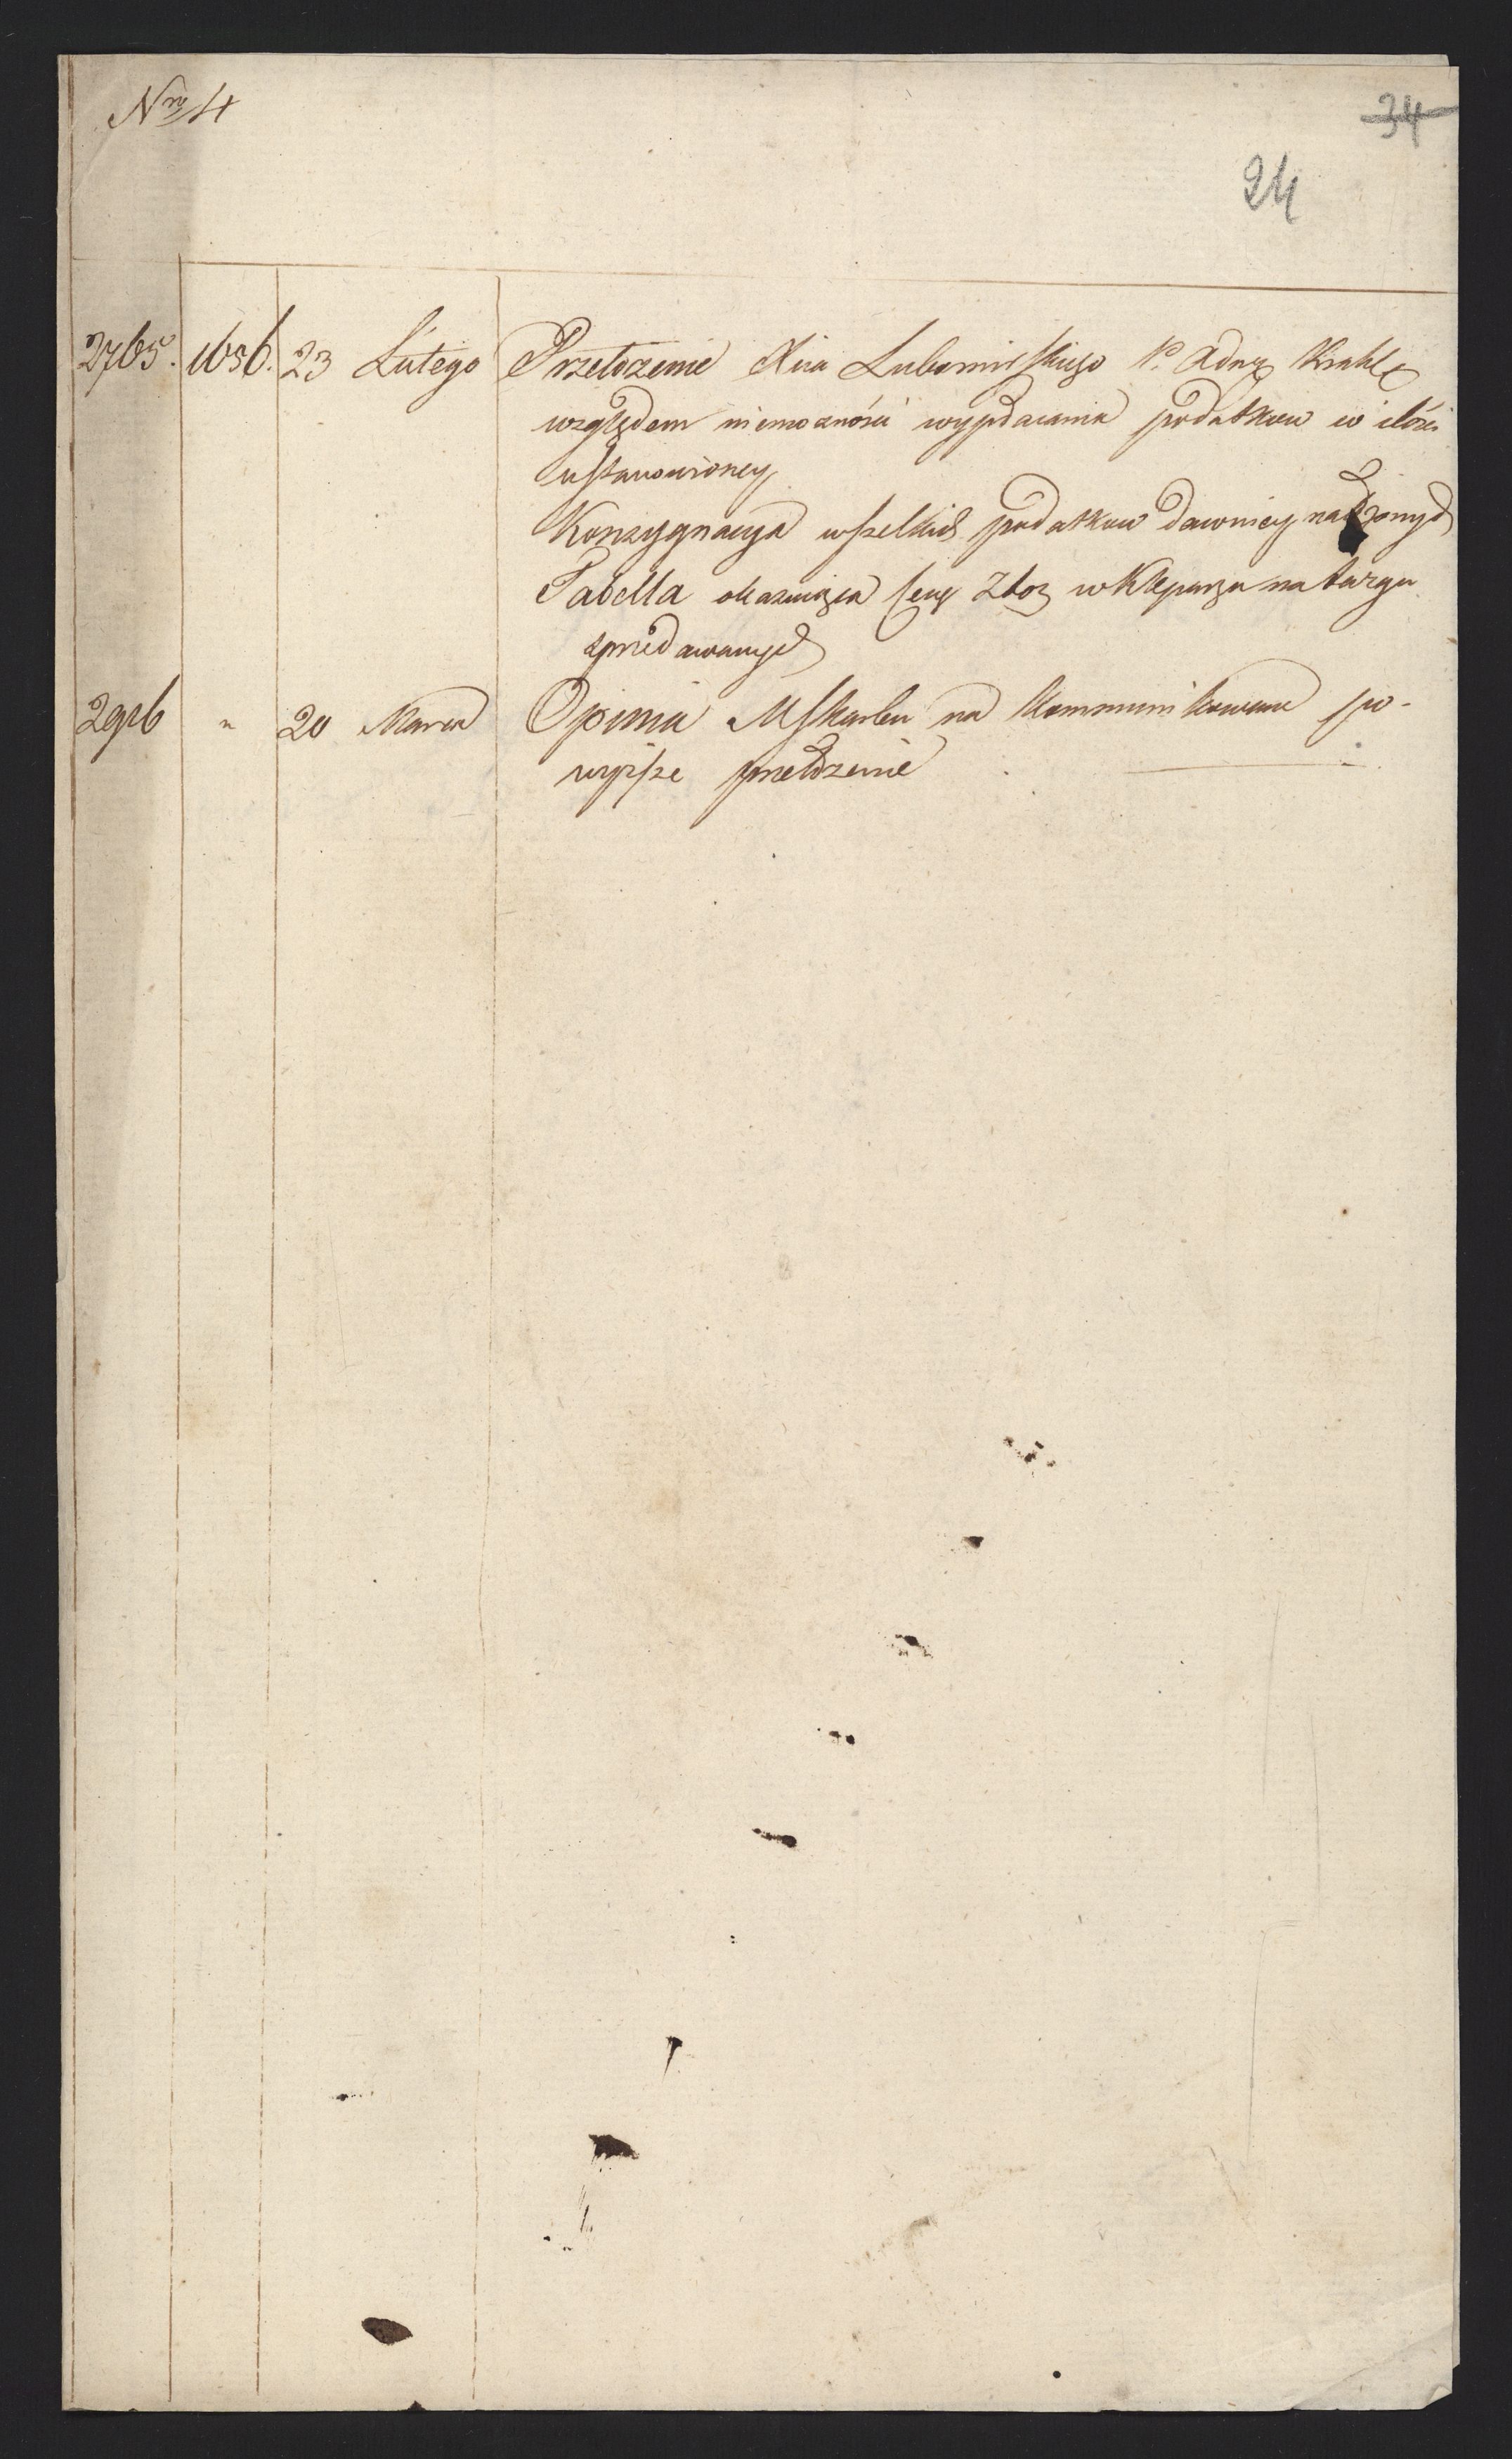 Nro 4
34
24
2765. 1656. 23 Lutego Przełozenie Xcia Lubomirskiego P. Adrz Krakl
względem niemozności wypłacania podatkow w ilości
ustanowioney
Konsygnacya wszelkich podatkow dawniey
Tabella okazuiąca Ceny Zboz w Kleparzu na targu
sprzedawanych
2916 " 20 Marca Opinia MSkarbu na kommunikowane po-
wyższe przełozenie